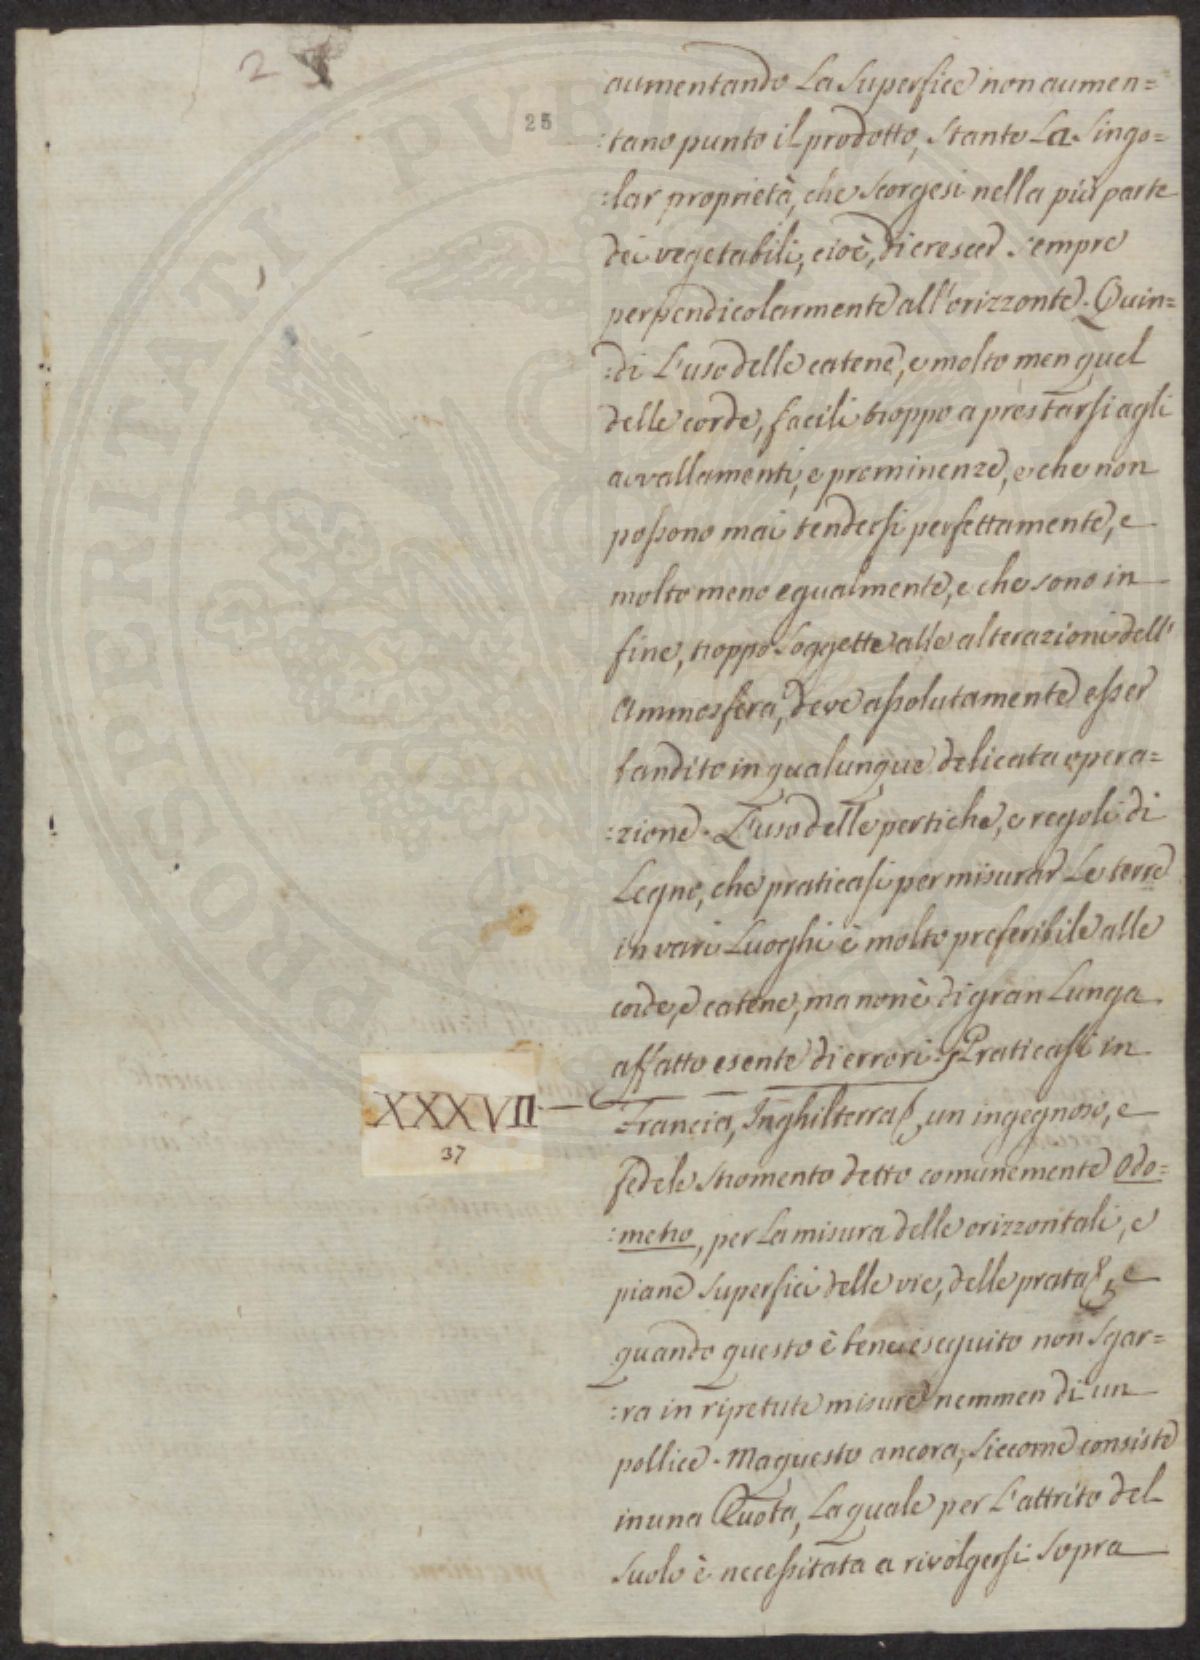 2
25
aumentando La Superfice non aumen=
:tano punto il prodotto, Stante La Singo=
:lar proprietà, che Scorgesi nella più parte
dei vegetabili, cioè, di crescer sempre
perpendicolarmente all'orizzonte. Quin=
:di L'uso delle catene, e molto men quel
delle corde, facili troppo a prestarsi agli
avvallamenti, e preminenze, e che non
possono mai tendersi perfettamente, e
molto meno egualmente, e che sono in
fine, troppo Soggette alle alterazioni dell'
Ammosfera, deve assolutamente esser
bandito in qualunque delicata opera=
:zione. L'uso delle pertiche, e regoli di
Legno, che praticasi per misurar Le terre
in vari Luoghi è molto preferibile alle
corde, e catene, ma non è di gran Lunga
affatto esente di errori. Praticasi in
XXXVII
37
Francia, Inghilterra, un ingegnoso, e
fedele stromento detto comunemente Odo=
:metro, per La misura delle orizzontali, e
piane Superfici delle vie, delle prata, e
quando questo è bene eseguito non Sgar=
:ra in ripetute misure nemmen di un
pollice. Ma questo ancora, Siccome consiste
in una Ruota, La quale per L'attrito del
Suolo è necessitata a rivolgersi Sopra
PROSPERITATI PUBL